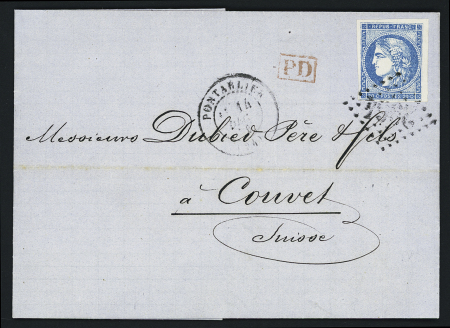 REPUB. FRANC.
PD
PONTARLIER
14
Messieurs Dubied Père & fils
à Couvet
Suisse